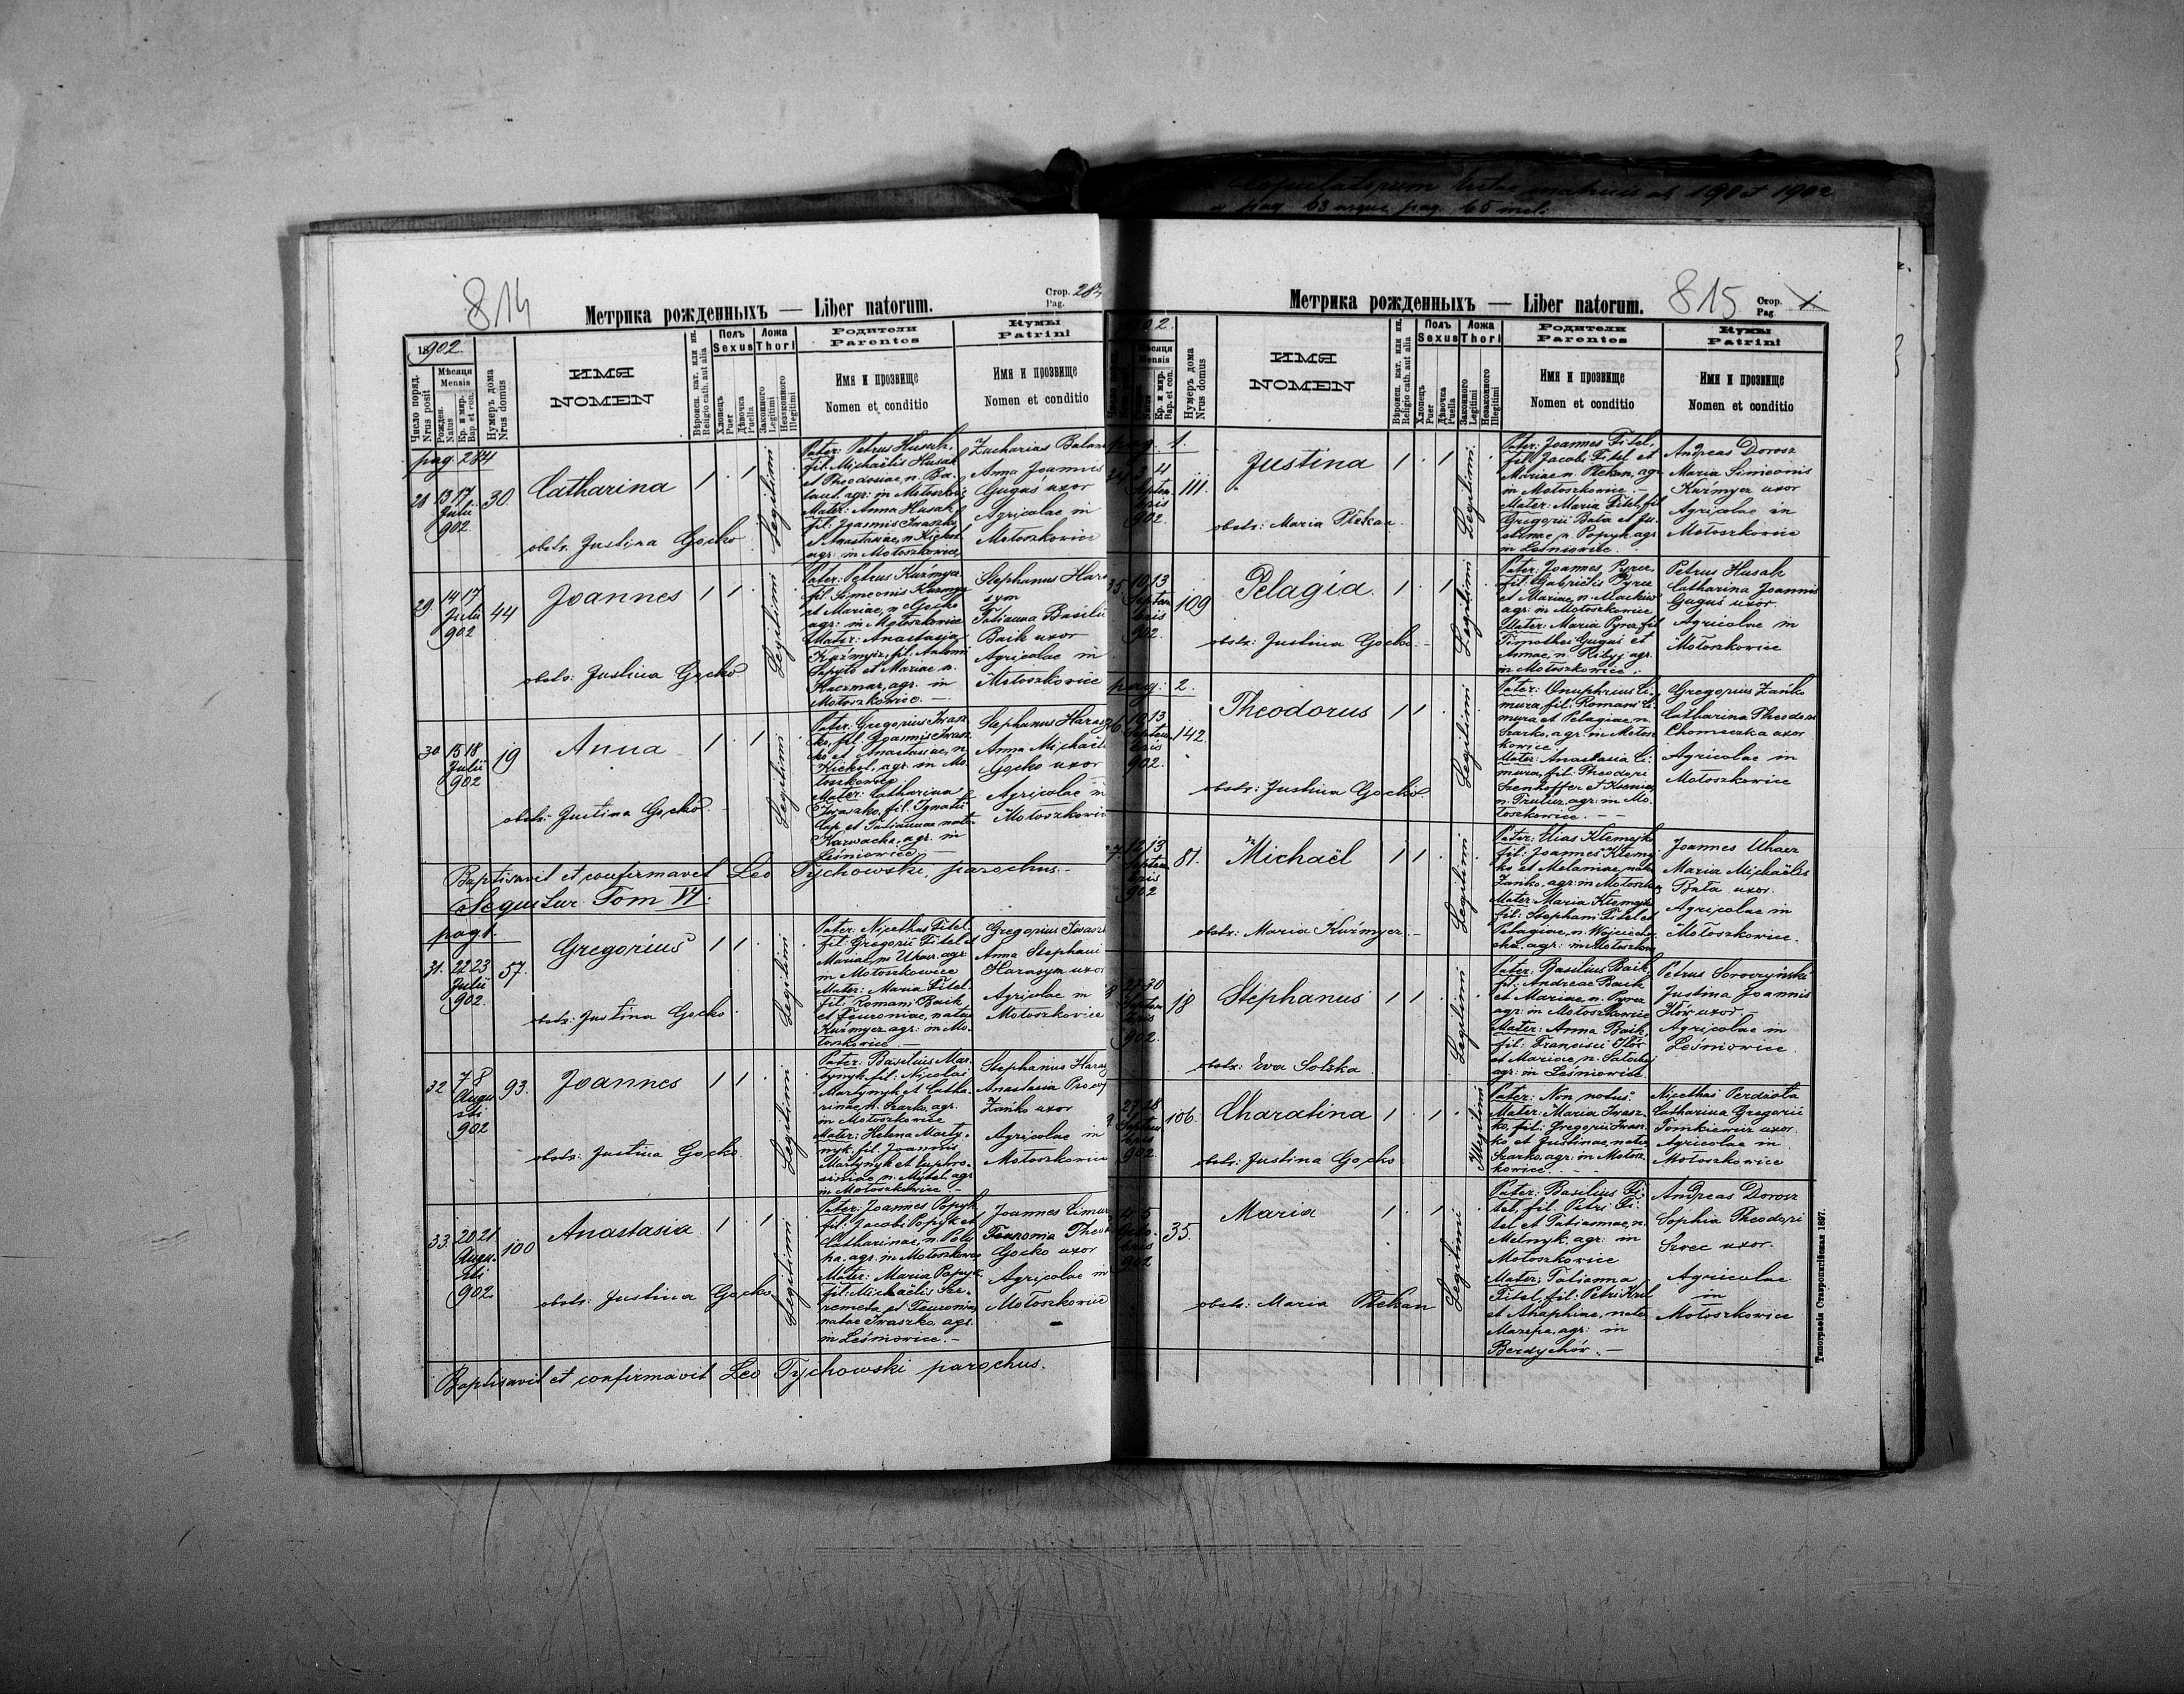 Copulatorum huius matricis ab 1901 et 1902
a pag. 63 usque pag. 65 incl.
814
Метрика рожденныхъ — Liber natorum.
Стор. Pag. 284
1902
Число поряд. Nrus posit
Мѣсяця Mensis
Рожден. Natus
Кр. и мир. Bap. et con.
Нумеръ дома Nrus domus
ИМЯ
NOMEN
Вѣроисп. кат. или ин. Religio cath. aut alia
Полъ Sexus
Хлопецъ Puer
Дѣвочка Puella
Ложа Thori
Законного Legitimi
Незаконного Illegitimi
Родители
Parentes
Имя и прозвище
Nomen et conditio
Кумы
Patrini
Имя и прозвище
Nomen et conditio
pag. 284
28 13 17 Julii 902. 30. Catharina 1 . 1 Legitimi
obstr. Justina Gocko
Pater: Petrus Husak,
fil. Michaëlis Husak
et Theodosiae, n. Ba-
laut, agr. in Mołoszkowice
Mater: Anna Husak
fil. Joannis Iwaszko
et Anastasiae, n. Kickel
agr. in Mołoszkowice
Zacharias Balau
Anna Joannis
Guguś uxor
Agricolae in
Mołoszkowice
29. 14 17 Julii 902 44 Joannes 1 1 . Legitimi
obstr: Justina Gocko
Pater: Petrus Kuźmycz
fil. Simeonis Kuźmycz
et Mariae, n. Gocko
agr. in Mołoszkowice
Mater: Anastasia
Kuźmycz, fil. Antonii
Sapyło et Mariae n.
Kaczmar, agr. in
Mołoszkowice. —
Stephanus Hara
sym
Tatianna Basilii
Baik uxor
Agricolae in
Mołoszkowice
30 15 18 Julii 902 19 Anna 1 . 1 Legitimi
obstr: Justina Gocko.
Pater: Gregorius Iwasz
ko, fil. Joannis Iwasz
ko et Anastasiae, n.
Kickel, agr. in Mo-
łoszkowice.
Mater: Catharina
Iwaszko, fil. Ignatii
Cap et Tatiannae natae
Karwacka, agr. in
Leśniowice —
Stephanus Harasy
Anna Michaëlis
Gocko uxor
Agricolae in
Mołoszkowice
Baptisavit et confirmavit Leo Tychowski, parochus. —
Sequitur Tom VI.
pag 1.
31. 22 23 Julii 902. 57. Gregorius 1 1 . Legitimi
obstr: Justina Gocko.
Pater: Nicethas Fitel
fil: Gregorii Fitel et
Mariae, n. Uhacz agr.
in Mołoszkowice
Mater: Maria Fitel
fil: Romani Baik
et Feuroniae, natae
Kuźmycz agr: in Mo-
łoszkowice —
Gregorius Iwasz
Anna Stephani
Harasym uxor
Agricolae in
Mołoszkowice
32 7 8 Augusti 902 93. Joannes 1 1 . Legitimi
obstr: Justina Gocko.
Pater: Basilius Mar-
tynyk fil: Nicolai
Martynyk et Catha-
rinae, n. Szarko, agr.
in Mołoszkowice
Mater: Helena Marty-
nyk, fil. Joannis
Martynyk et Euphro-
sinae n. Mytel, agr
in Mołoszkowice —
Stephanus Haras
Anastasia
Zańko uxor
Agricolae in
Mołoszkowice
33. 20 21 Augusti 902. 100 Anastasia 1 . 1 Legitimi
obstr: Justina Gocko
Pater: Joannes Popyk
fil: Jacobi Popyk et
Catharinae, n.
agr. in Mołoszkowice
Mater: Maria Popyk
fil: Michaëlis Sze-
remeta et Feuroniae
natae Iwaszko, agr.
in Leśniowice. —
Joannes Cimura
Feuronia Theod
Gocko uxor
Agricolae in
Mołoszkowice
—
Baptisavit et confirmavit Leo Tychowski parochus.
Метрика рожденныхъ — Liber natorum.
815
Стор. Pag. 1
902.
Мѣсяця Mensis
Кр. и мир. Bap. et con.
Нумеръ дома Nrus domus
ИМЯ
NOMEN
Вѣроисп. кат. или ин. Religio cath. aut alia
Полъ Sexus
Хлопецъ Puer
Дѣвочка Puella
Ложа Thori
Законного Legitimi
Незаконного Illegitimi
Родители
Parentes
Имя и прозвище
Nomen et conditio
Кумы
Patrini
Имя и прозвище
Nomen et conditio
pag. 1.
34 2 4 Septembris 902. 111. Justina 1 . 1 Legitimi
obstr: Maria Ptekan.
Pater: Joannes Fitel,
fil. Jacobi Fitel et
Mariae n. Ptekan, agr
in Mołoszkowice. —
Mater: Maria Fitel, fil
Gregorii Bała et Ju-
stinae, n. Popyk agr
in Leśniowice.
Andreas Dorosz
Maria Simeonis
Kuźmycz uxor
Agricolae in
Mołoszkowice
35. 10 13 Septembris 902. 109 Pelagia. 1 . 1 Legitimi
obstr: Justina Gocko. —
Pater: Joannes Pyrcz,
fil. Gabrielis Pyrcz
et Mariae, n. Maćkiw
agr: in Mołoszkowice
Mater: Maria Pyrcz, fil
Timothei Guguś et
Annae, n. Ribyj agr.
in Mołoszkowice.
Petrus Husak
Catharina Joannis
Guguś uxor
Agricolae in
Mołoszkowice
pag: 2.
36 12 13 Septembris 902. 142. Theodorus 1 1 Legitimi
obstr: Justina Gocko.
Pater: Onuphrius Ci-
mura, fil: Romani Ci-
mura et Pelagiae, n.
Szarko, agr. in Mołosz
kowice.
Mater: Anastasia Ci-
mura, fil: Theodori
Szenhoffer et Kseniae
n. Trulur, agr: in Mo-
łoszkowice. — —
Gregorius Zańko
Catharina Theodori
Chomiczka uxor
Agricolae in
Mołoszkowice
37. 12 13 Septembris 902 81. Michaël 1 1 . Legitimi
obstr: Maria Kuźmycz. —
Pater: Elias Klemejko
fil: Joannes Klemej-
ko et Melaniae, natae
Zańko, agr: in Mołoszkow
Mater: Maria Klemejko
fil: Stephani Fitel et
Pelagiae, n. Wojciecho-
ska, agr: in Mołoszkow
Joannes Uhacz
Maria Michaëlis
Bała uxor.
Agricolae in
Mołoszkowice.
8 27 30 Septembris 902. 18 Stephanus 1 1 . Legitimi
obstr: Eva Solska
Pater: Basilius Baik
fil: Andreae Baik
et Mariae, n. Pyrcz
agr: in Mołoszkowice
Mater: Anna Baik,
fil: Francisci Iłór
et Mariae, n.
agr: in Leśniowice
Petrus Soroczyński
Justina Joannis
Iłór uxor
Agricolae in
Leśniowice
27 28 Septembris 902. 106. Charatina 1 . 1 Illegitimi
obstr: Justina Gocko
Pater: Non notus
Mater: Maria Iwasz-
ko, fil: Gregorii Iwasz-
ko et Justinae, natae
Szarko, agr: in Mołosz
kowice. — —
Nicethas Perdiata
Catharina Gregorii
Tomkiewicz uxor.
Agricolae in
Mołoszkowice
4 5 Octobris 902 35. Maria 1 . 1 Legitimi
obstr: Maria Ptekan
Pater: Basilius Fi-
tel, fil: Petri Fi-
tel et Tatiannae, n.
Melnyk, agr: in
Mołoszkowice
Mater: Tatianna
Fitel, fil: Petri Kril
et Ahaphiae, natae
Mazepa, agr: in
Berdychów. —
Andreas Dorosz
Sophia Theodori
Szwec uxor.
Agricolae
in
Mołoszkowice
Типографія Ставропигійская 1897.